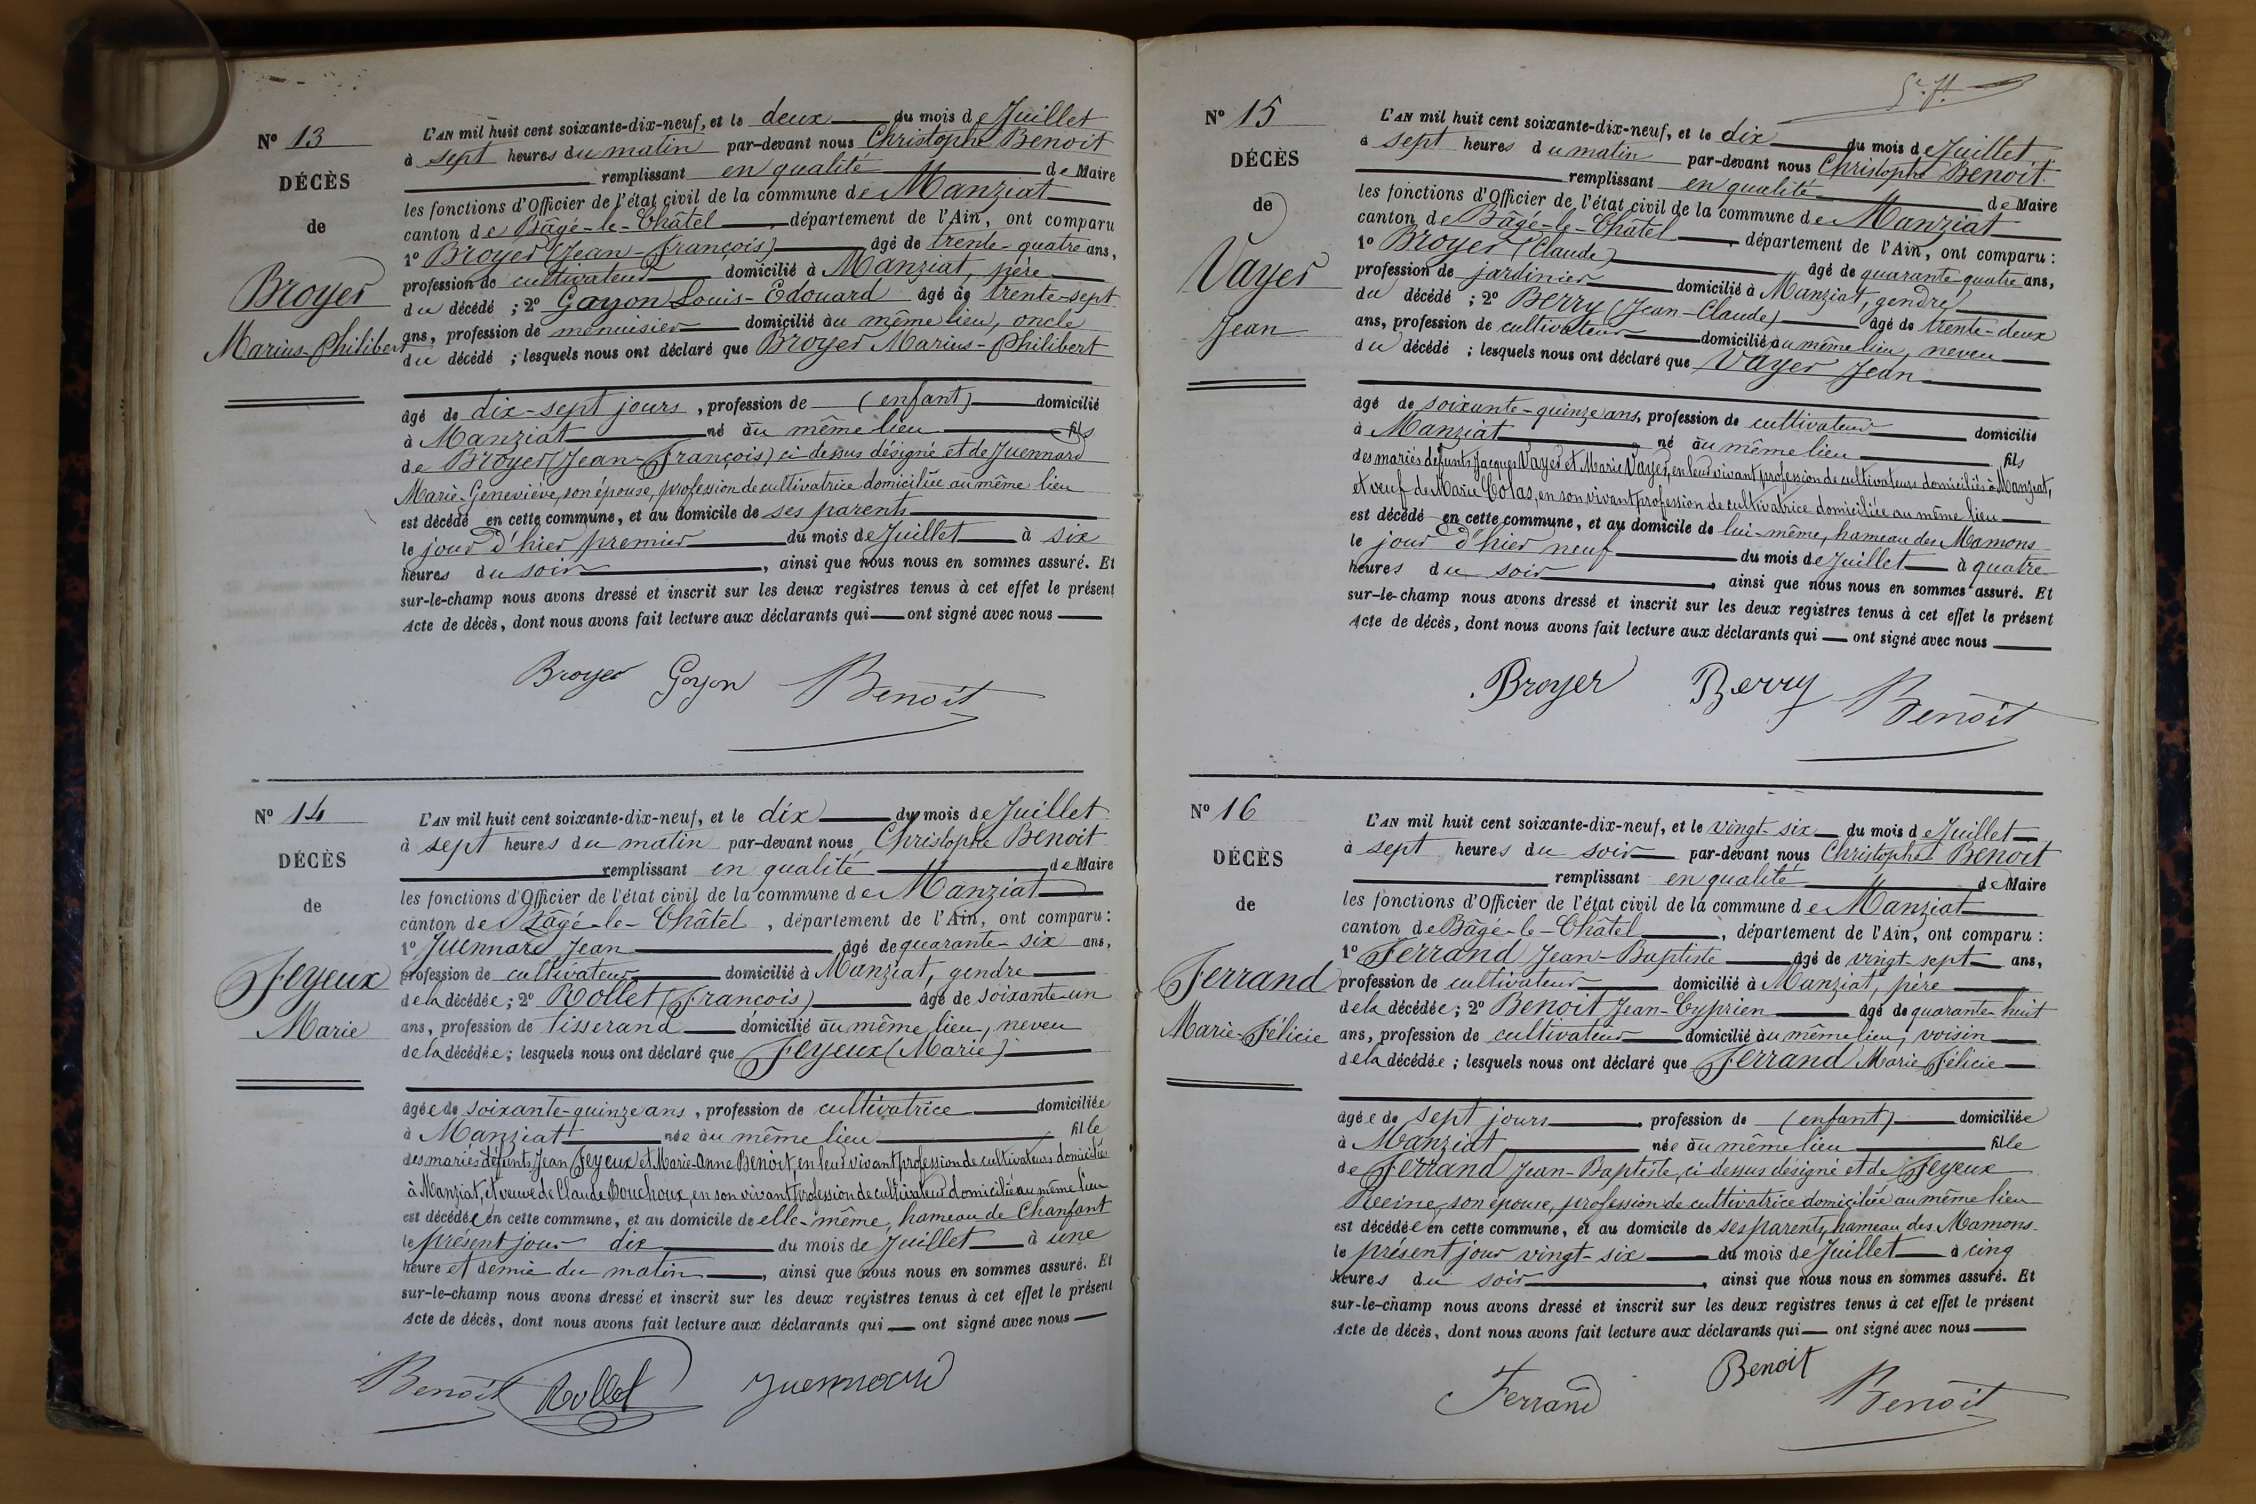 Nº 13
DÉCÈS
de
Broyer
Marius-Philibert
L'AN mil huit cent soixante-dix-neuf, et le deux du mois de Juillet
à sept heures du matin par-devant nous Christophe Benoit
remplissant en qualité de Maire
les fonctions d'Officier de l'état civil de la commune de Manziat
canton de Bâgé-le-Châtel, département de l'Ain, ont comparu
1º Broyer (Jean-François) âgé de trente-quatre ans,
profession de cultivateur domicilié à Manziat, père
du décédé ; 2º Goyon Louis-Edouard âgé de trente-sept
ans, profession de menuisier domicilié au même lieu, oncle
du décédé ; lesquels nous ont déclaré que Broyer Marius-Philibert
âgé de dix-sept jours, profession de (enfant) domicilié
à Manziat né au même lieu fils
de Broyer (Jean-François) ci-dessus désigné et de Juennard
Marie-Geneviève, son épouse, profession de cultivatrice domiciliée au même lieu
est décédé en cette commune, et au domicile de ses parents
le jour d'hier premier du mois de Juillet à six
heures du soir, ainsi que nous nous en sommes assuré. Et
sur-le-champ nous avons dressé et inscrit sur les deux registres tenus à cet effet le présent
Acte de décès, dont nous avons fait lecture aux déclarants qui ont signé avec nous
Broyer Goyon Benoit
Nº 14
DÉCÈS
de
Feyeux
Marie
L'AN mil huit cent soixante-dix-neuf, et le dix du mois de Juillet
à sept heures du matin par-devant nous Christophe Benoit
remplissant en qualité de Maire
les fonctions d'Officier de l'état civil de la commune de Manziat
canton de Bâgé-le-Châtel, département de l'Ain, ont comparu :
1º Juennard Jean âgé de quarante-six ans,
profession de cultivateur domicilié à Manziat, gendre
de la décédée ; 2º Rollet (François) âgé de soixante-un
ans, profession de tisserand domicilié au même lieu, neveu
de la décédée ; lesquels nous ont déclaré que Feyeux (Marie)
âgée de soixante-quinze ans, profession de cultivatrice domiciliée
à Manziat née au même lieu fille
des mariés défunts Jean Feyeux et Marie-Anne Benoit, en leur vivant profession de cultivateurs domiciliés
à Manziat, et veuve de Claude Bouchoux, en son vivant profession de cultivateur domicilié au même lieu
est décédée en cette commune, et au domicile de elle-même, hameau de Chanfant
le présent jour dix du mois de Juillet à une
heure et demie du matin, ainsi que nous nous en sommes assuré. Et
sur-le-champ nous avons dressé et inscrit sur les deux registres tenus à cet effet le présent
Acte de décès, dont nous avons fait lecture aux déclarants qui ont signé avec nous
Benoit Rollet Juennard
Nº 15
DÉCÈS
de
Vayer
Jean
L'AN mil huit cent soixante-dix-neuf, et le dix du mois de Juillet
à sept heures du matin par-devant nous Christophe Benoit
remplissant en qualité de Maire
les fonctions d'Officier de l'état civil de la commune de Manziat
canton de Bâgé-le-Châtel, département de l'Ain, ont comparu :
1º Broyer (Claude) âgé de quarante-quatre ans,
profession de jardinier domicilié à Manziat, gendre
du décédé ; 2º Berry (Jean-Claude) âgé de trente-deux
ans, profession de cultivateur domicilié au même lieu, neveu
du décédé ; lesquels nous ont déclaré que Vayer Jean
âgé de soixante-quinze ans, profession de cultivateur domicilié
à Manziat né au même lieu fils
des mariés défunts Jacques Vayer et Marie Vayer, en leur vivant profession de cultivateurs domiciliés à Manziat,
et veuf de Marie Colas, en son vivant profession de cultivatrice domiciliée au même lieu
est décédé en cette commune, et au domicile de lui-même, hameau des Mamons
le jour d'hier neuf du mois de Juillet à quatre
heures du soir, ainsi que nous nous en sommes assuré. Et
sur-le-champ nous avons dressé et inscrit sur les deux registres tenus à cet effet le présent
Acte de décès, dont nous avons fait lecture aux déclarants qui ont signé avec nous
Broyer Berry Benoit
Nº 16
DÉCÈS
de
Ferrand
Marie-Félicie
L'AN mil huit cent soixante-dix-neuf, et le vingt-six du mois de Juillet
à sept heures du soir par-devant nous Christophe Benoit
remplissant en qualité de Maire
les fonctions d'Officier de l'état civil de la commune de Manziat
canton de Bâgé-le-Châtel, département de l'Ain, ont comparu :
1º Ferrand Jean-Baptiste âgé de vingt sept ans,
profession de cultivateur domicilié à Manziat, père
de la décédée ; 2º Benoit Jean-Cyprien âgé de quarante-huit
ans, profession de cultivateur domicilié au même lieu, voisin
de la décédée ; lesquels nous ont déclaré que Ferrand Marie Félicie
âgée de sept jours, profession de (enfant) domiciliée
à Manziat née au même lieu fille
de Ferrand Jean-Baptiste, ci-dessus désigné et de Feyeux
Reine, son épouse, profession de cultivatrice domiciliée au même lieu
est décédée en cette commune, et au domicile de ses parents, hameau des Mamons
le présent jour vingt-six du mois de Juillet à cinq
heures du soir, ainsi que nous nous en sommes assuré. Et
sur-le-champ nous avons dressé et inscrit sur les deux registres tenus à cet effet le présent
Acte de décès, dont nous avons fait lecture aux déclarants qui ont signé avec nous
Ferrand Benoit Benoit